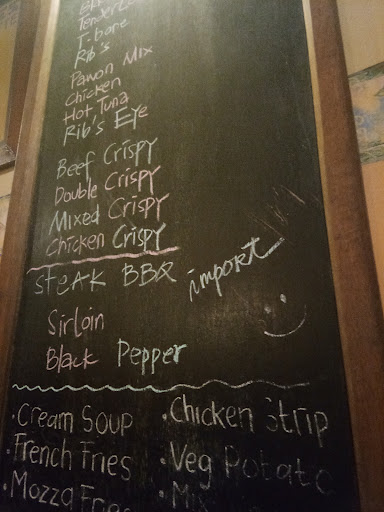 Tenderlo
T-bone
Rib's
Pawon Mix
Chicken
Hot Tuna
Rib's Eye
Beef Crispy
Double Crispy
Mixed Crispy
Chicken Crispy
Steak BBQ import
Sirloin
Black Pepper
·Cream Soup ·Chicken Strip
·French Fries ·Veg Potato
·Mozza Fries ·Mix